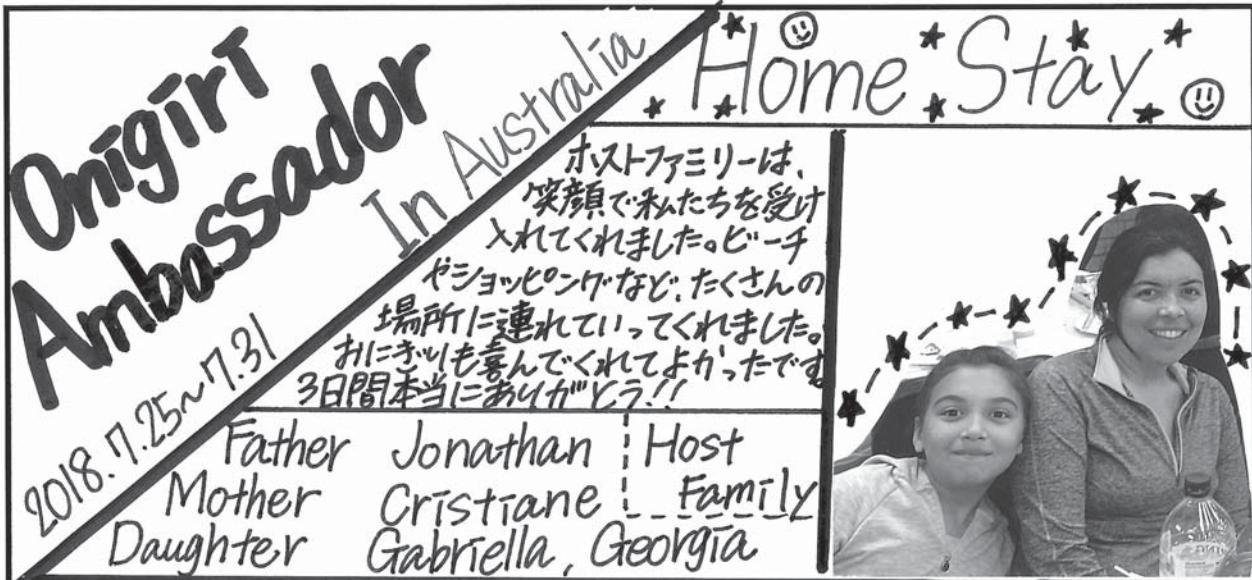 Onigiri
Ambassador
In Australia
2018.7.25~7.31
Home Stay
ホストファミリーは、
笑顔で私たちを受け
入れてくれました。ビーチ
やショッピングなど、たくさんの
場所に連れていってくれました。
おにぎりも喜んでくれてよかったです。
3日間本当にありがとう!!
Father Jonathan
Mother Cristiane
Daughter Gabriella, Georgia
Host
Family